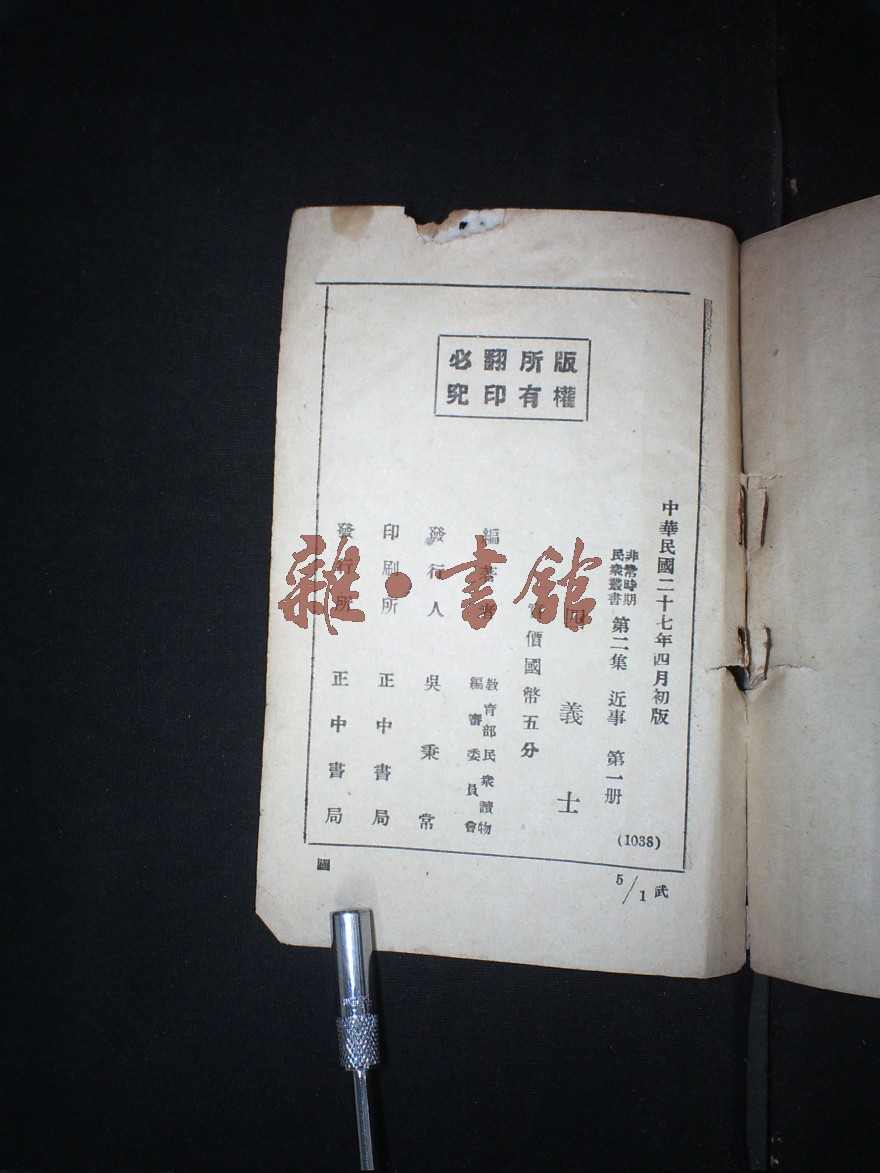 版權所有
翻印必究
中華民國二十七年四月初版
非常時期民衆叢書 第二集 近事 第一册
(1038)
四義士
實價國幣五分
編著者 教育部民衆讀物編審委員會
發行人 吳秉常
印刷所 正中書局
發行所 正中書局
5/1 武
圖
雜·書館